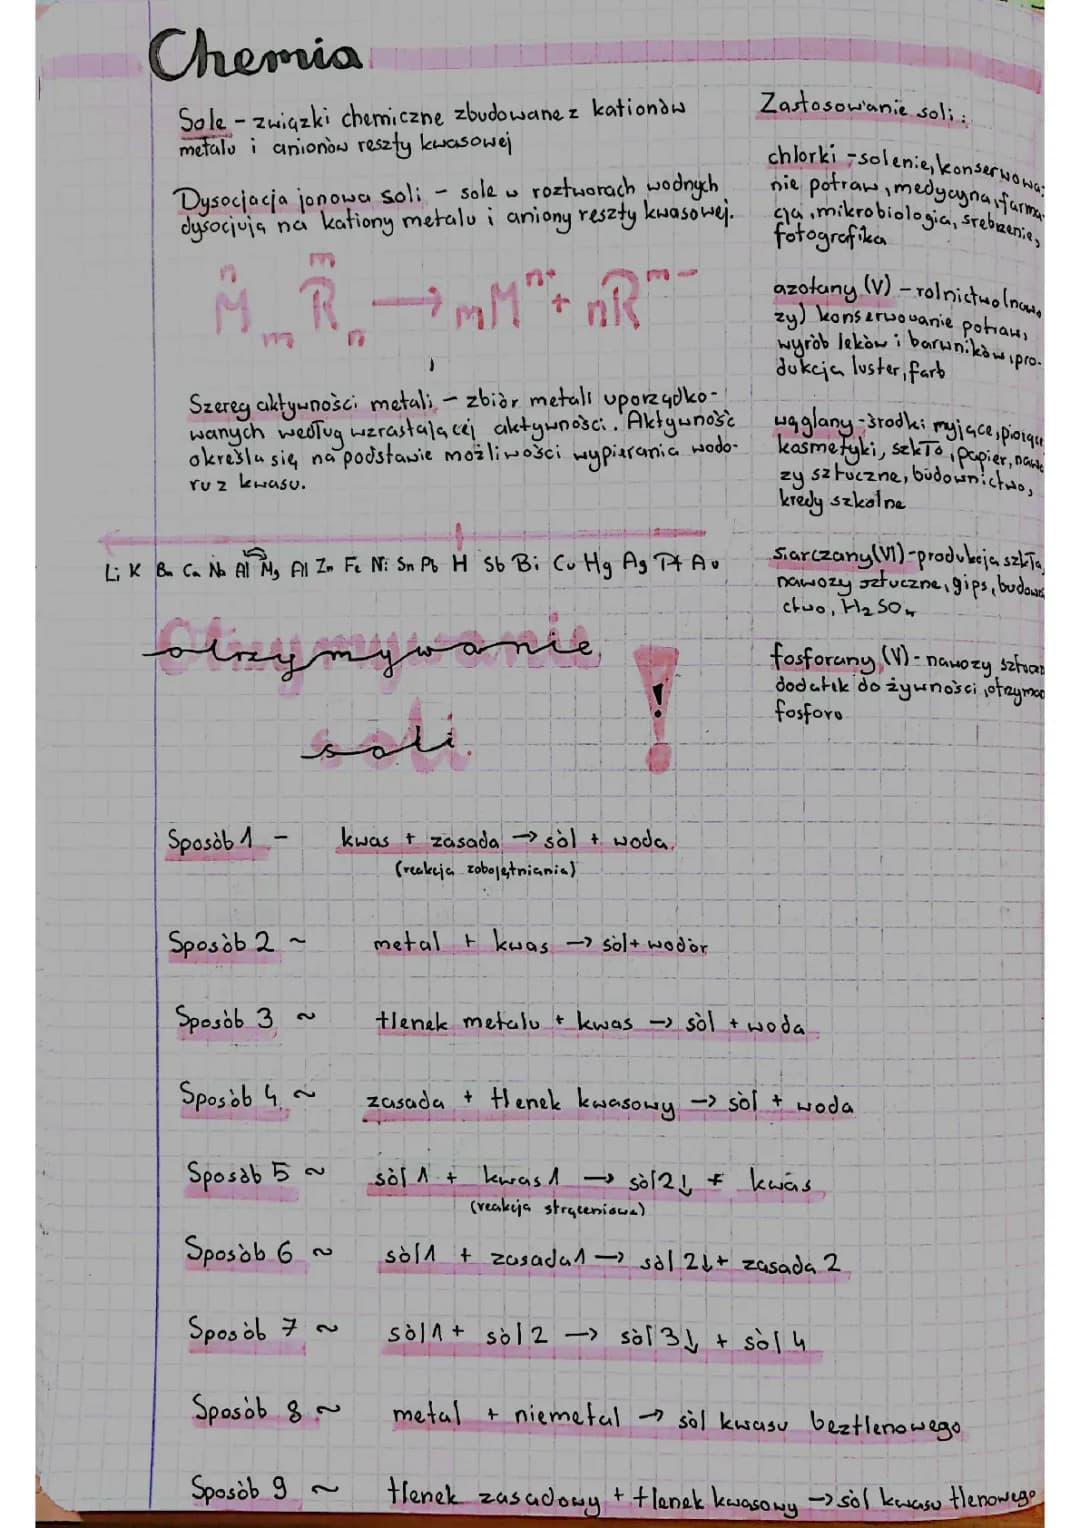 Chemia
Sole - związki chemiczne zbudowane z kationów
metalu i anionów reszty kwasowej
Dysocjacja jonowa soli - sole w roztworach wodnych
dysocjują na kationy metalu i aniony reszty kwasowej.
n m
M m R n → mMⁿ⁺ + nRᵐ⁻
Szereg aktywności metali - zbiór metali uporządko-
wanych według wzrastającej aktywności. Aktywność
określa się na podstawie możliwości wypierania wodo-
ru z kwasu.
Li K Ba Ca Na Al Mg Al Zn Fe Ni Sn Pb H Sb Bi Cu Hg Ag Pt Au
Otrzymywanie
soli !
Sposób 1 - kwas + zasada → sól + woda
(reakcja zobojętniania)
Sposób 2 ~ metal + kwas → sól + wodór
Sposób 3 ~ tlenek metalu + kwas → sól + woda
Sposób 4 ~ zasada + tlenek kwasowy → sól + woda
Sposób 5 ~ sól 1 + kwas 1 → sól 2↓ + kwas
(reakcja strąceniowa)
Sposób 6 ~ sól 1 + zasada 1 → sól 2↓ + zasada 2
Sposób 7 ~ sól 1 + sól 2 → sól 3↓ + sól 4
Sposób 8 ~ metal + niemetal → sól kwasu beztlenowego
Sposób 9 ~ tlenek zasadowy + tlenek kwasowy → sól kwasu tlenowego
Zastosowanie soli:
chlorki - solenie, konserwowa-
nie potraw, medycyna, farma-
cja, mikrobiologia, srebrzenie,
fotografika
azotany (V) - rolnictwo (nawo
zy) konserwowanie potraw,
wyrób leków i barwników, pro-
dukcja luster, farb
węglany - środki myjące, piorące
kosmetyki, szkło, papier, nawo
zy sztuczne, budownictwo,
kredy szkolne
siarczany (VI) - produkcja szkła,
nawozy sztuczne, gips, budowni
ctwo, H₂SO₄
fosforany (V) - nawozy
dodatek do żywności,
fosforu